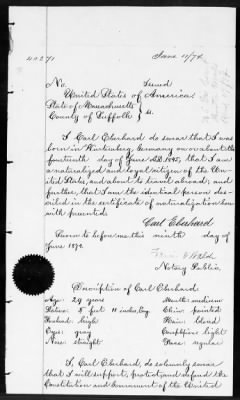 40271
June 11/74
No. Issued
United States of America.
State of Massachusetts } ss.
County of Suffolk
I Carl Eberhard do swear that I was
born in Wurtemberg, Germany on or about the
fourteenth day of June A.D. 1845, that I am
a naturalized and loyal citizen of the Uni-
ted States, and about to travel abroad; and
further, that I am the identical person des-
cribed in the certificate of naturalization here-
with presented.
Carl Eberhard
Sworn to before me this ninth day of
June 1874.
Notary Public.
Description of Carl Eberhard
Age: 29 years
Mouth: medium
Stature: 5 feet 11 inches, Eng.
Chin: pointed
Forehead: high
Hair: blond
Eyes: gray
Complexion: light
Nose: straight
Face: regular
I, Carl Eberhard, do solemnly swear
that I will support, protect, and defend the
Constitution and Government of the United